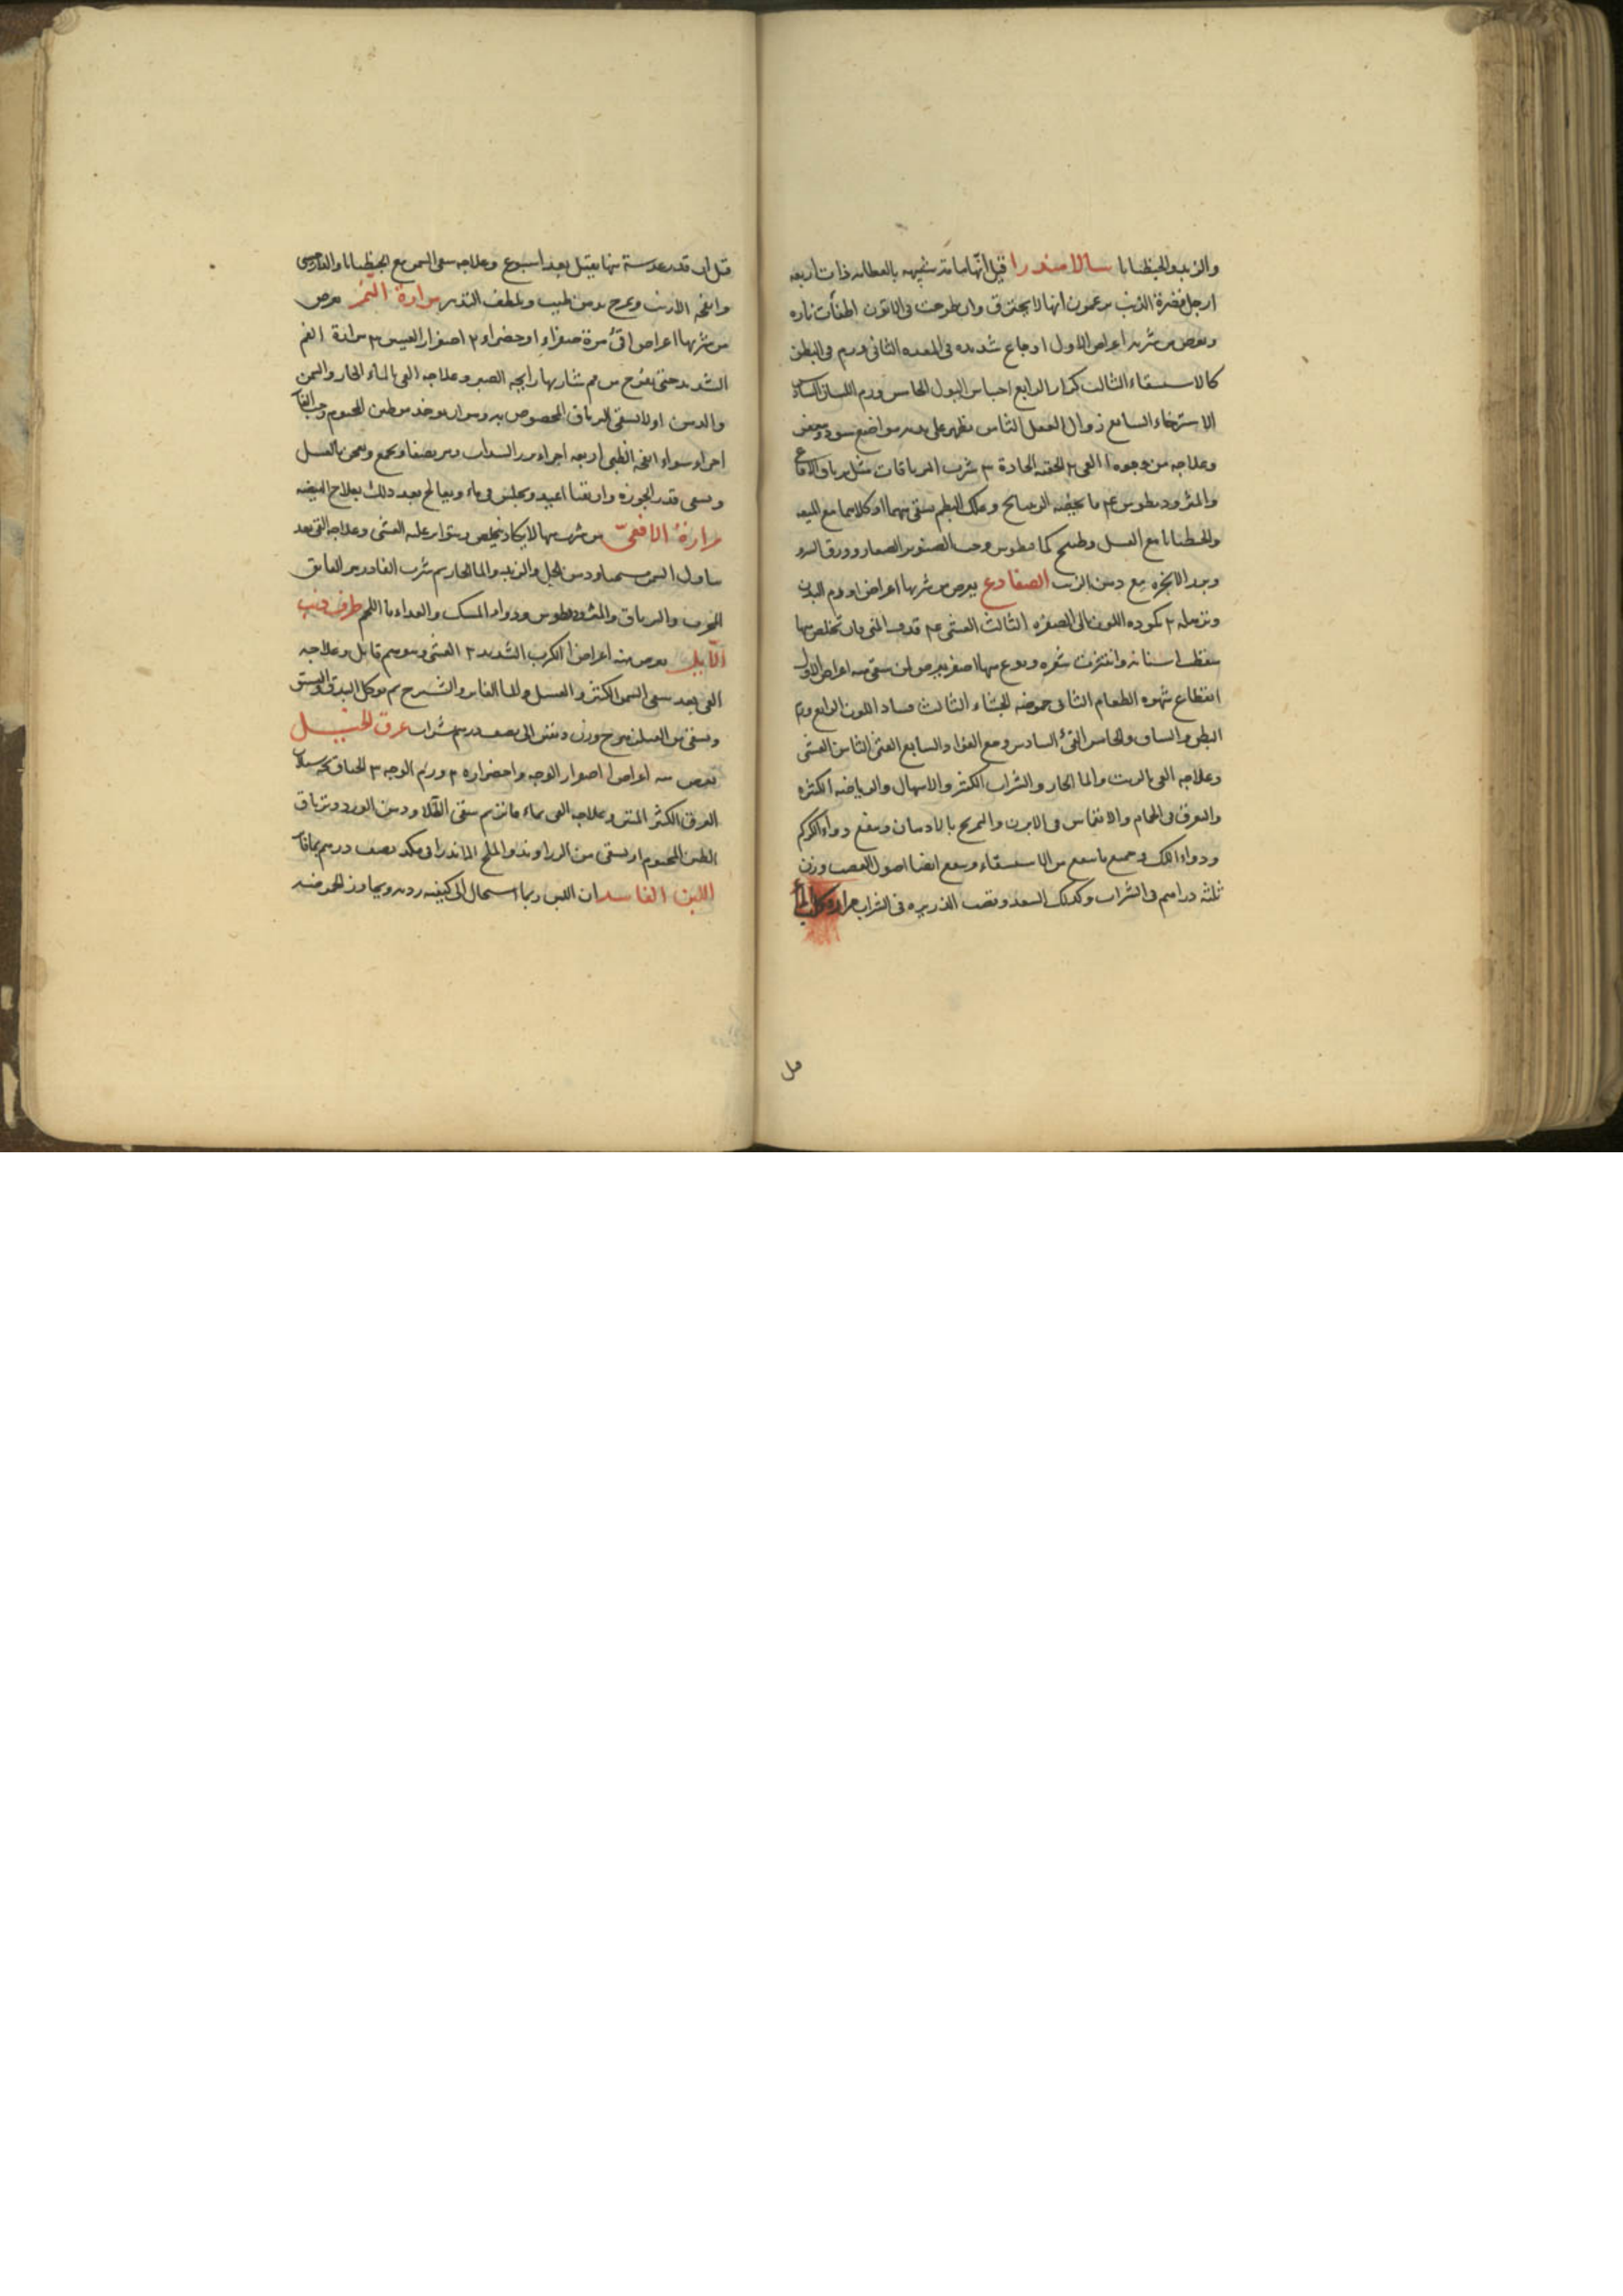 والزبد والجنطيانا سالامندرا قيل انها سامة شبيهه بالعظايه ذات اربعه
ارجل قصيرة الذنب يزعمون انها لا يحترق وان طرحت فى الاتون اطفأت ناره
ويعرض من شربه اعراض الاول اوجاع شديده فى المعده الثانى ورم فى البطن
كالاستسقاء الثالث كزاز الرابع احتباس البول الخامس ورم اللسان السادس
الاسترخاء السابع زوال العقل الثامن يظهر على بدنه مواضع سود ويعفن
وعلاجه من وجوه ا القى ٢ الحقنه الحادة ٣ شرب الترياقات مثل ترياق الافاعى
والمثروديطوس ٤ ما يخصه الراتيانج وعلك البطم يسقى منهما او كلاهما مع الميعه
والجنطيانا مع العسل وطبيخ كمافيطوس وحب الصنوبر الصغار وورق السرو
وبزر الانجره مع دهن الزيت الضفادع يعرض من شربها اعراض ا ورم البدن
وترهله ٢ كموده اللون الى الصفره الثالث الغشى ٤ قذف المنى وان تخلص منها
سقطت اسنانه وانتثرت شعره ونوع منها اصفر يعرض لمن سقى منه اعراض الاول
انقطاع شهوه الطعام الثانى حموضه الجشاء الثالث فساد اللون الرابع ورم
البطن والساق والخامس القئ السادس وجع الفؤاد السابع الغثى الثامن الغشى
وعلاجه القى بالزيت والما الحار والشراب الكثير والاسهال والرياضه الكثيره
والتعرق فى الحمام والانغماس فى الابزن والتمريخ بالادهان وينفع دواء الكركم
ودواء اللك وجميع ما ينفع من الاستسقاء وينفع ايضا اصول القصب وزن
ثلثه دراهم فى الشراب وكذلك السعد وقصب الذريره فى الشراب مرارة كلب الماء
قيل
قيل ان قدر عدسة منها يقتل بعد اسبوع وعلاجه سقى السمن مع الجنطيانا والدارصينى
وانفحه الارنب ويمرخ بدهن طيب ويلطف التدبير مرارة النمر يعرض
من شربها اعراض ا قئ مرة صفراء او خضراء ٢ اصفرار العينين ٣ مرارة الفم
الشديد حتى يفوح من فم شاربها رايحه الصبر وعلاجه القى بالماء الحار والسمن
والدهن اولا يسقى الترياق المخصوص به وهو ان يوخذ من طين المختوم وحب الغار
اجزاء سواء انفحه الظبى اربعه اجزاء بزر السداب ومر نصفا ويجمع ويعجن بالعسل
ويسقى قدر الجوزه وان تقيا اعيد ويجلس فى ماء ويعالج بعد ذلك بعلاج الهيضه
مرارة الافعى من شرب منها لا يكاد يتخلص ويتواتر عليه الغشى وعلاجه القى بعد
تناول السمن سمسما ودهن الخل والزبد والما الحار ثم شرب الفادزهر الفايق
المجرب والترياق والمثروديطوس ودواء المسك والغداء ماء اللحم طرف ذنب
الايل يعرض منه اعراض ا الكرب الشديد ٢ الغشى وهو سم قاتل وعلاجه
القى بعد سقى السمن الكثير والعسل والما الفاتر والشيرج ثم يوكل البندق والفستق
ويسقى من الفيلزهرج وزن دنقين الى نصف درهم بشراب عرق الخيل
يعرض منه اعراض ا اصفرار الوجه واخضراره ٢ ورم الوجه ٣ الخناق ٤ سيلان
العرق الكثير المنتن وعلاجه القى بماء فاتر ثم سقى الطلا ودهن الورد وترياق
الطين المختوم او يسقى من الزراوند والملح الاندرانى مكد نصف درهم بماء فاتر
اللبن الفاسد ان اللبن ربما استحال الى كيفيه رديه ويجاوز الحموضه